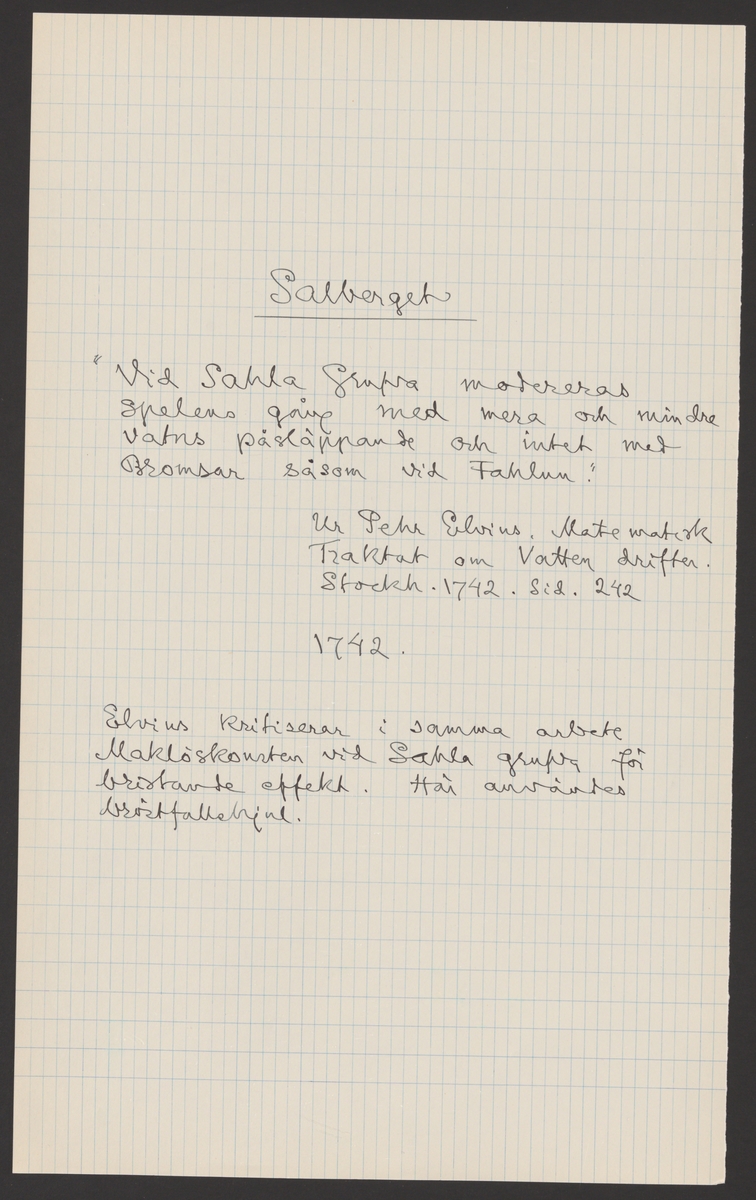 Salberget
"Vid Sahla Grufva modereras
Spelens gång med mera och mindre
Vatns påsläppande och intet med
Bromsar såsom vid Fahlun."
Ur Pehr Elvius. Matematisk
Traktat om Vatten drifter.
Stockh. 1742. Sid. 242
1742.
Elvius kritiserar i samma arbete
Maklöskonsten vid Sahla grufva för
bristande effekt. Här användes
bröstfallshjul.